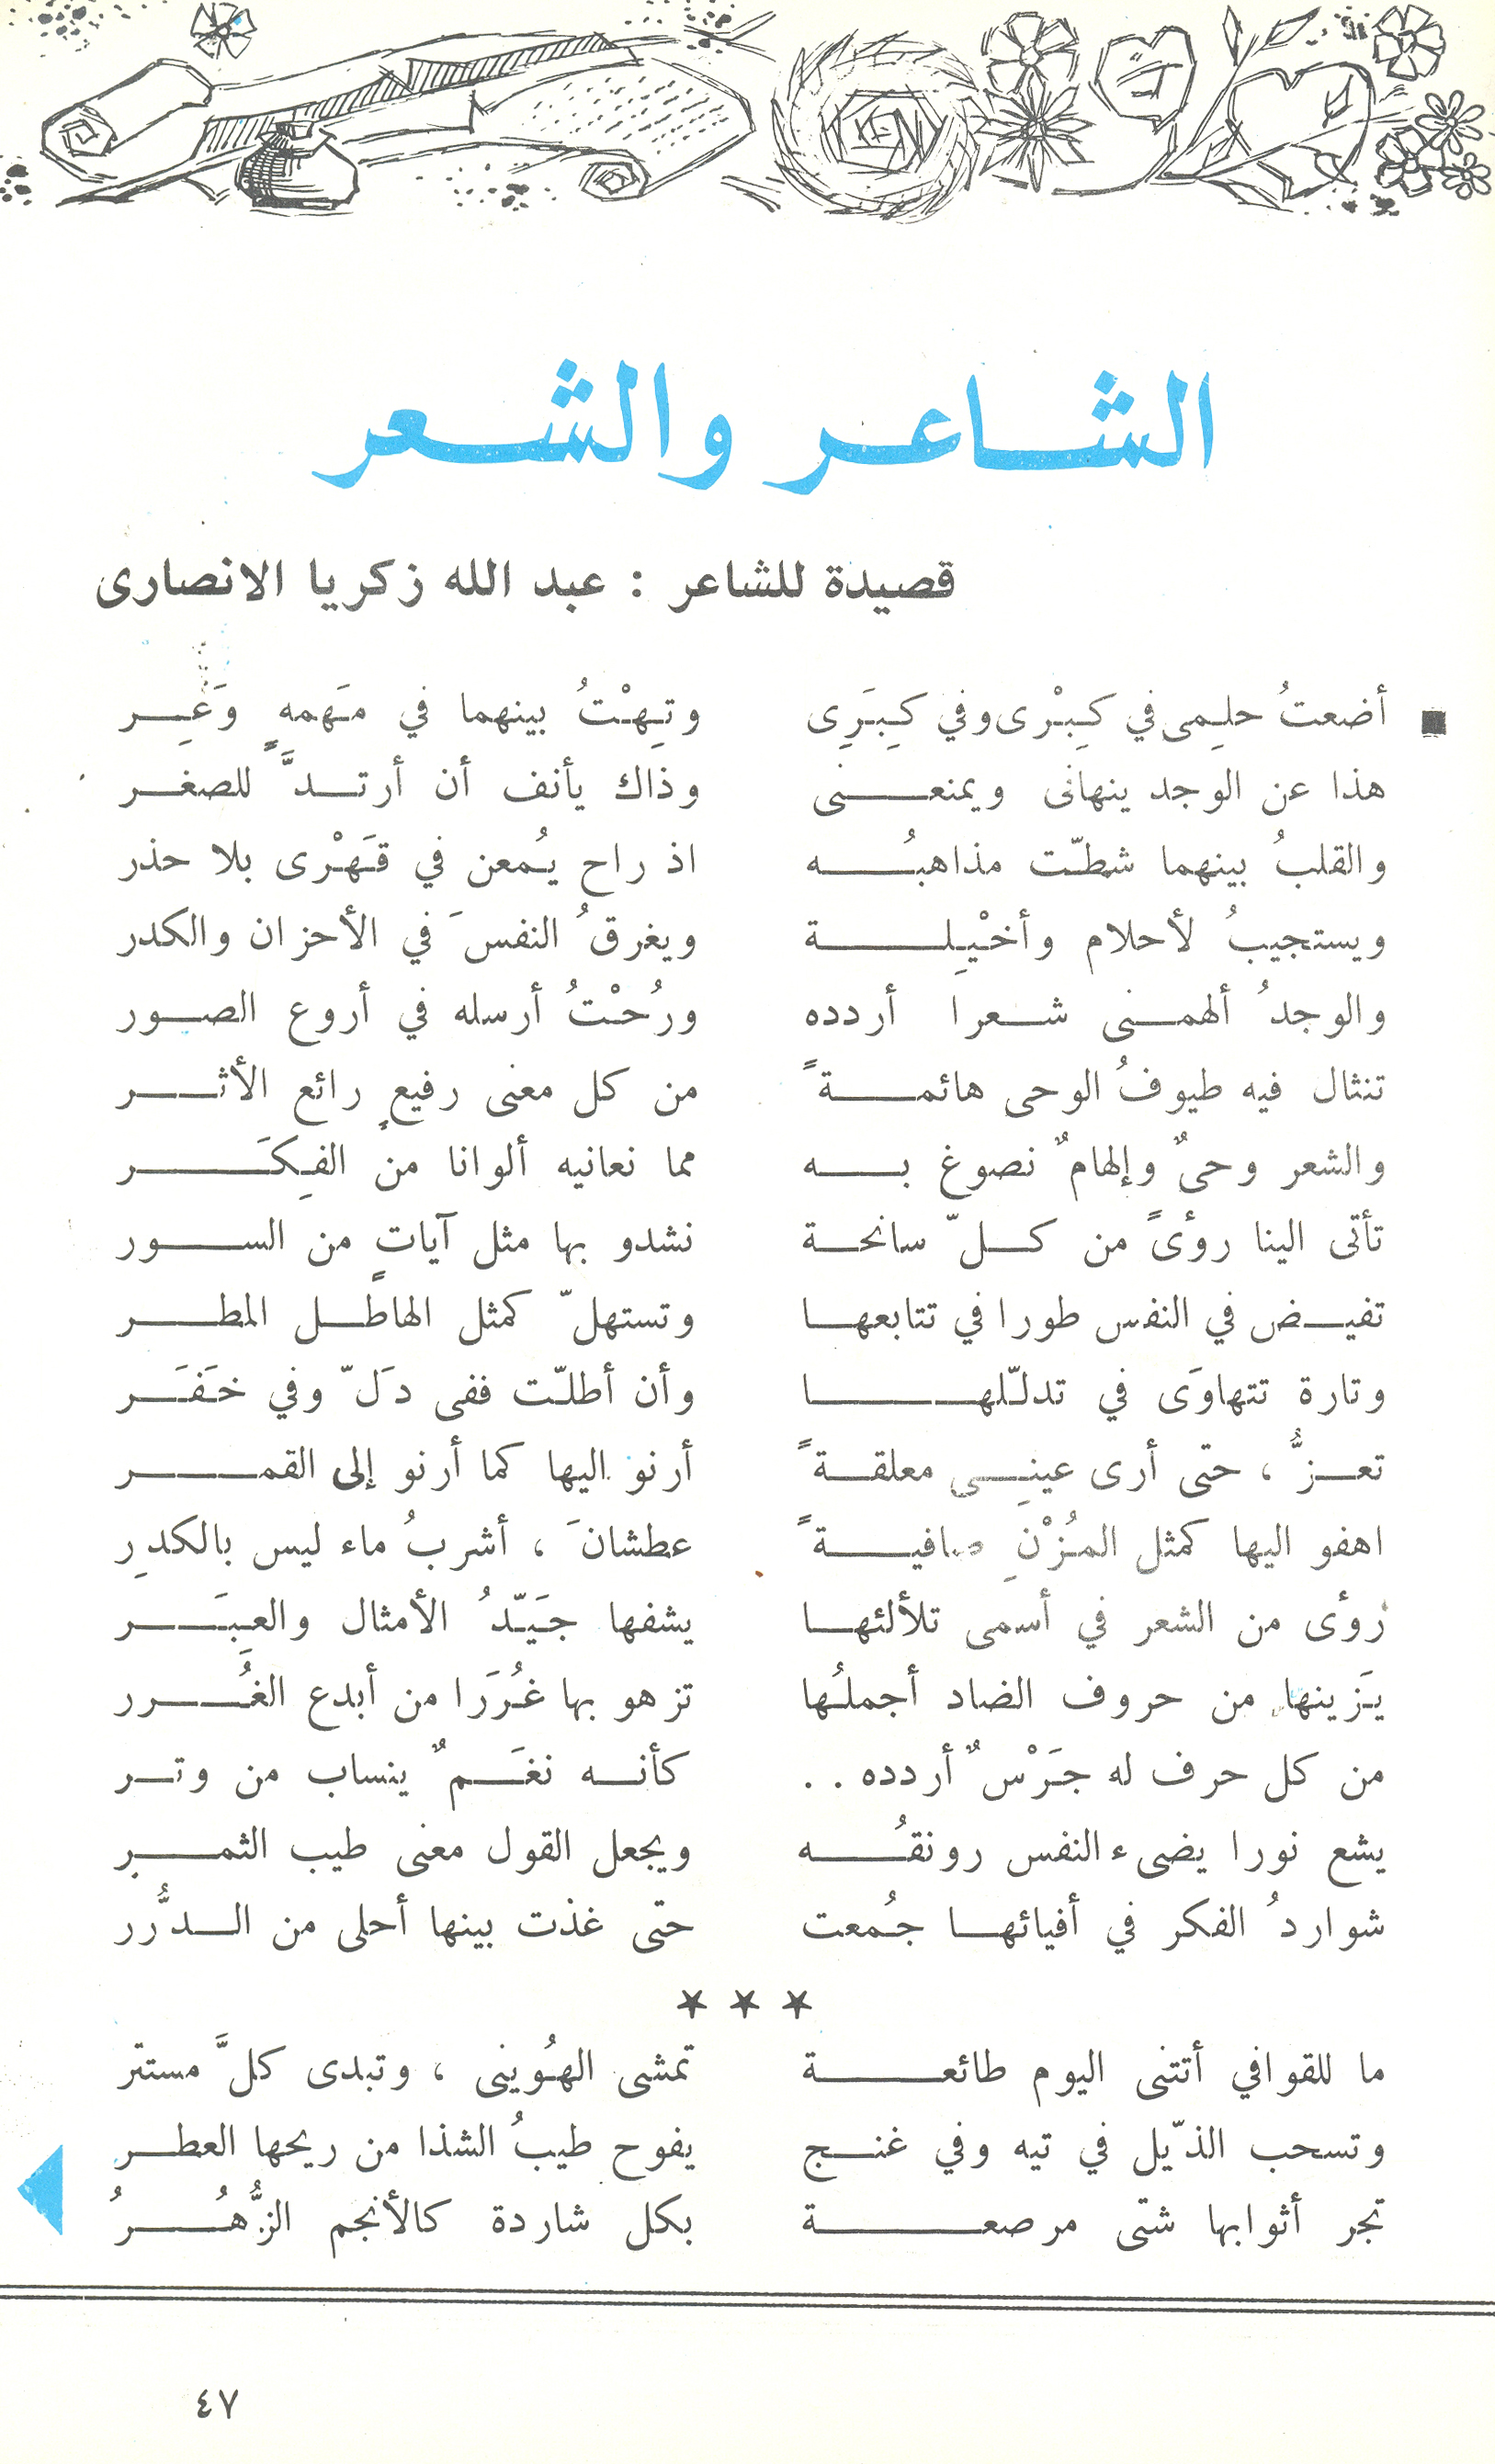 الشاعر والشعر
قصيدة للشاعر : عبد الله زكريا الانصارى
أضعتُ حلِمى في كِبْرى وفي كِبَرِى وتِهْتُ بينهما في مَهمهٍ وَعِر
هذا عن الوجد ينهانى ويمنعنى وذاك يأنف أن أرتدَّ للصغر
والقلبُ بينهما شطّت مذاهبُه اذ راح يُمعن في قَهْرى بلا حذر
ويستجيبُ لأحلام وأخْيِلة ويغرقُ النفسَ في الأحزان والكدر
والوجدُ ألهمنى شعرا أردده ورُحْتُ أرسله في أروع الصور
تنثال فيه طيوفُ الوحى هائمةً من كل معنى رفيعٍ رائع الأثر
والشعر وحىٌ وإلهامٌ نصوغ به مما نعانيه ألوانا من الفِكَر
تأتى الينا رؤىً من كلّ سانحة نشدو بها مثل آياتٍ من السور
تفيض في النفس طورا في تتابعها وتستهلّ كمثل الهاطل المطر
وتارة تتهاوَى في تدلّلها وأن أطلّت ففى دَلّ وفي خَفَر
تعزُّ ، حتى أرى عينِى معلقةً أرنو اليها كما أرنو إلى القمر
اهفو اليها كمثل المُزْنِ صافيةً عطشانَ ، أشربُ ماء ليس بالكدرِ
رؤى من الشعر في أسمى تلألئها يشفها جَيّدُ الأمثال والعِبَر
يَزينها من حروف الضاد أجملُها تزهو بها غُرَرا من أبدع الغُرر
من كل حرف له جَرْسٌ أردده . . كأنه نغَمٌ ينساب من وتر
يشع نورا يضىء النفس رونقُه ويجعل القول معنى طيب الثمر
شواردُ الفكر في أفيائها جُمعت حتى غذت بينها أحلى من الدُّرر
★ ★ ★
ما للقوافي أتتنى اليوم طائعة تمشى الهُوينى ، وتبدى كلَّ مستتر
وتسحب الذّيل في تيه وفي غنج يفوح طيبُ الشذا من ريحها العطر
تجر أثوابها شتى مرصعة بكل شاردة كالأنجم الزُّهُرُ
٤٧